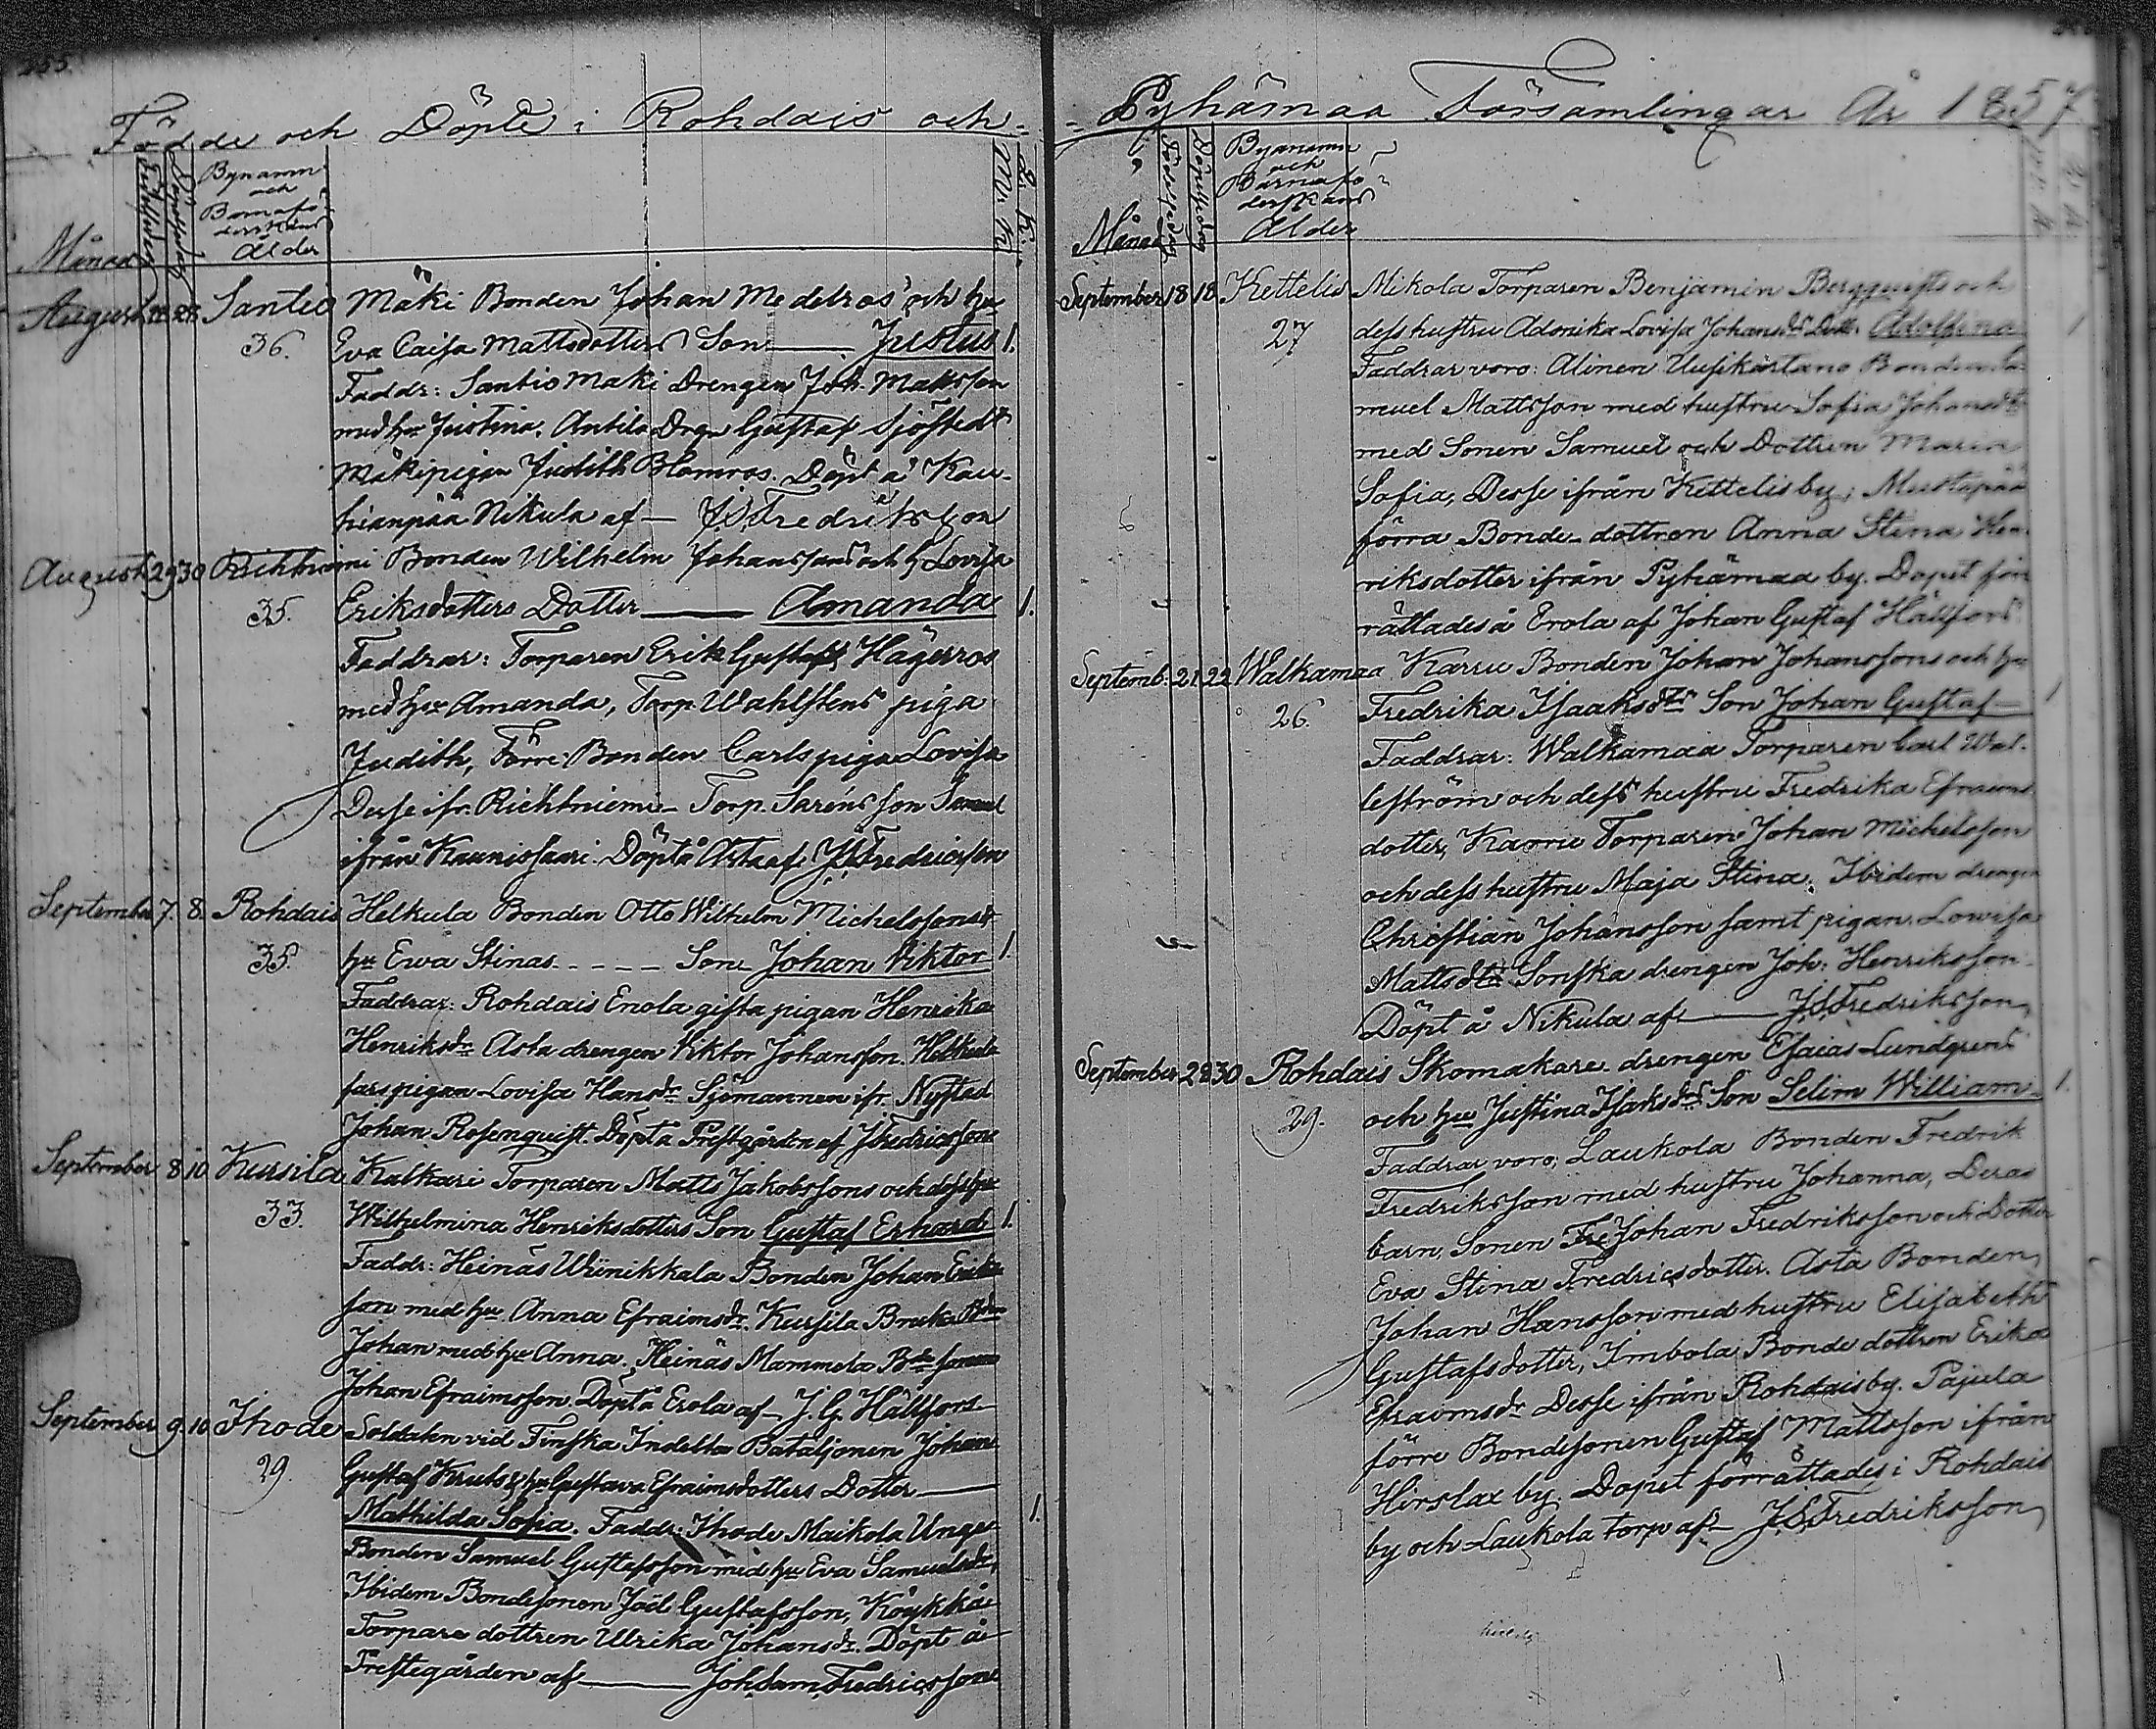 255.
Födde och Döpte i Rohdais och
Månad
Födelsedag
Döpelsedag
Bynamn
och
Barnafö-
derskans
Ålder
M. K.
Q. K.
August 28 Santio Mäki Bonden Johan Medelros och hu
36. Eva Caisa Mattsdotters Son Justus 1.
Faddr: Santio Mäki Drengen Joh. Mattsson
med hu Justina. Antila Drgn Gustaf Sjöstedt
Mäkipigan Judith Blomros. Döpt å Kau-
hianpää Nikula af J.S.Fredriksson
August 29 30 Rihtniemi Bonden Wilhelm Johanssons och h. Lovisa
35. Eriksdotters Dotter Amanda 1.
Faddrar: Torparen Erik Gustafs Hägerros
med hu Amanda, Torp. Wahlstens piga
Judith, Förre Bonden Carls piga Lovisa
Desse ifr. Richtniemi Torp. Saréns son Samuel
ifrån Kaunissaari. Döpt å Asta af J.S.Fredricsson
September 7. 8. Rohdais Helkula Bonden Otto Wilhelm Michelssons &
35. hu Ewa Stinas Son Johan Viktor 1.
Faddrar: Rohdais Erola gifta pigan Henrika
Henriksdr Asta drengen Viktor Johansson. Helkula
fars pigan Lovisa Hansdr Sjömannen ifr. Nystad
Johan Rosenquist. Döpt å Prestgården af J.Fredricsson
September 8 10 Kursila Kalkari Torparen Matts Jakobssons och dess hu
33. Wilhelmina Henriksdotters Son Gustaf Erhard 1.
Faddr: Heinäs Wiinikkala Bonden Johan Eriks-
son med hu Anna Efraimsdr. Kursila Bruka Bdn
Johan med hu Anna. Heinäs Mammela Bde sonen
Johan Efraimsson. Döpt å Erola af J. G. Hällfors
September 9. 10 Ihode Soldaten vid Finska Indelta Bataljonen Johan
29. Gustaf Kruts & hu Gustava Efraimsdotters Dotter
Mathilda Sofia. Faddr: Ihode Maikola Unge 1.
Bonden Samuel Gustafsson med hu Eva Samuelsdr,
Ibidem Bondesonen Joël Gustafsson, Köykkä
Torpare dottren Ulrika Johansdr. Döpt å
Prestegården af Joh.Sam.Fredricsson
Pyhämaa Församlingar År 1857
Månad
Födelsedag
Döpelsedag
Bynamn
och
Barnafö-
derskans
Ålder
September 18 18. Kettelis Mikola Torparen Benjamin Bergquists och
27 dess hustru Adonika Lovisa Johansdrs Dott. Adolfina 1
Faddrar voro: Alinen Uusikartano Bonden Sa-
muel Mattsson med hustru Sofia Johansdr
med Sonen Samuel och Dottren Maria
Sofia, Desse ifrån Kettelis by; Mustapää
förra Bonde-dottren Anna Stina Hen-
riksdotter ifrån Pyhämaa by. Dopet för-
rättades å Erola af Johan Gustaf Hällfors
Septemb. 21. 22 Walkamaa Karru Bonden Johan Johanssons och hu
26. Fredrika Isaaksdrs Son Johan Gustaf 1
Faddrar: Walkamaa Torparen Carl Wal-
leström och dess hustru Fredrika Efraims-
dotter, Karru Torparen Johan Michelsson
och dess hustru Maja Stina. Ibidem drengen
Christian Johansson samt pigan Lowisa
Mattsdtr Sonska drengen Joh: Henriksson
Döpt å Nikula af J.S.Fredriksson
September 28 30 Rohdais Skomakare drengen Esaias Lundgrens
29. och hu Justina Isaksdrs Son Selim William 1.
Faddrar voro; Laukola Bonden Fredrik
Fredriksson med hustru Johanna, Deras
barn, Sonen Fre Johan Fredriksson och Dotter
Eva Stina Fredricsdotter. Asta Bonden
Johan Hansson med hustru Elisabeth
Gustafsdotter, Imbola Bonde dottren Erika
Efraimsdr Desse ifrån Rohdais by. Pajula
förre Bondesonen Gustaf Mattsson ifrån
Hirslax by. Dopet förrättades i Rohdais
by och Laukola torp af J.S.Fredriksson